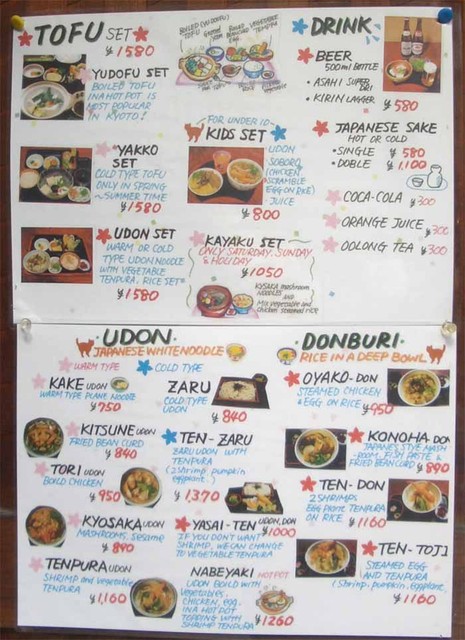 TOFU SET
¥1580
YUDOFU SET
BOILED TOFU
IN A HOT POT IS
MOST POPULAR
IN KYOTO!
YAKKO
SET
COLD TYPE TOFU
ONLY IN SPRING
~SUMMER TIME
¥1580
UDON SET
WARM OR COLD
TYPE UDON NOODLE
WITH VEGETABLE
TENPURA. RICE SET
¥1580
BOILED (YUDOFU)
TOFU
FOR UNDER 10
KIDS SET
UDON
SOBORO
(CHICKEN
SCRAMBLE
EGG ON RICE)
JUICE
¥800
KAYAKU SET
ONLY SATURDAY. SUNDAY
& HOLIDAY
¥1050
KYSAKA mushroom
NOODLES
and
Mix vegetable and
chicken steamed rice
DRINK
BEER
500ml BOTTLE
• ASAHI SUPER
DRI
• KIRIN LAGGER
¥580
JAPANESE SAKE
HOT OR COLD
• SINGLE ¥580
• DOBLE ¥1,100
COCA-COLA ¥300
ORANGE JUICE ¥300
OOLONG TEA ¥300
UDON
JAPANESE WHITE NOODLE
WARM TYPE
COLD TYPE
KAKE UDON
WARM TYPE PLANE NOODLE
¥750
KITSUNE UDON
FRIED BEAN CURD
¥840
TORI UDON
BOILD CHICKEN
¥950
KYOSAKA UDON
MASHROOMS. sesame
¥840
TENPURA UDON
SHRIMP and vegetable
TENPURA
¥1,160
ZARU
COLD TYPE
UDON
¥840
TEN-ZARU
ZARU UDON WITH
TENPURA
(2 Shrimp pumpkin
eggplant.)
¥1,370
YASAI-TEN UDON, DON
¥1000
IF YOU DON'T WANT
SHRIMP, WE CAN CHANGE
TO VEGETABLE TENPURA
NABEYAKI HOT POT
UDON BOILD WITH
vegetables.
CHICKEN, EGG.
IN A HOT POT
TOPPING WITH
SHRIMP TENPURA
¥1260
DONBURI
RICE IN A DEEP BOWL
OYAKO-DON
STEAMED CHICKEN
& EGG ON RICE
¥950
KONOHA DON
JAPANES STYLE MASH
-ROOM, FISH PASTE &
FRIED BEAN CURD ¥890
TEN-DON
2 SHRIMPS
EGG PLANTE TENPURA
ON RICE
¥1160
TEN-TOJI
STEAMED EGG
AND TENPURA
(Shrimp, pumpkin, eggplant
¥1160